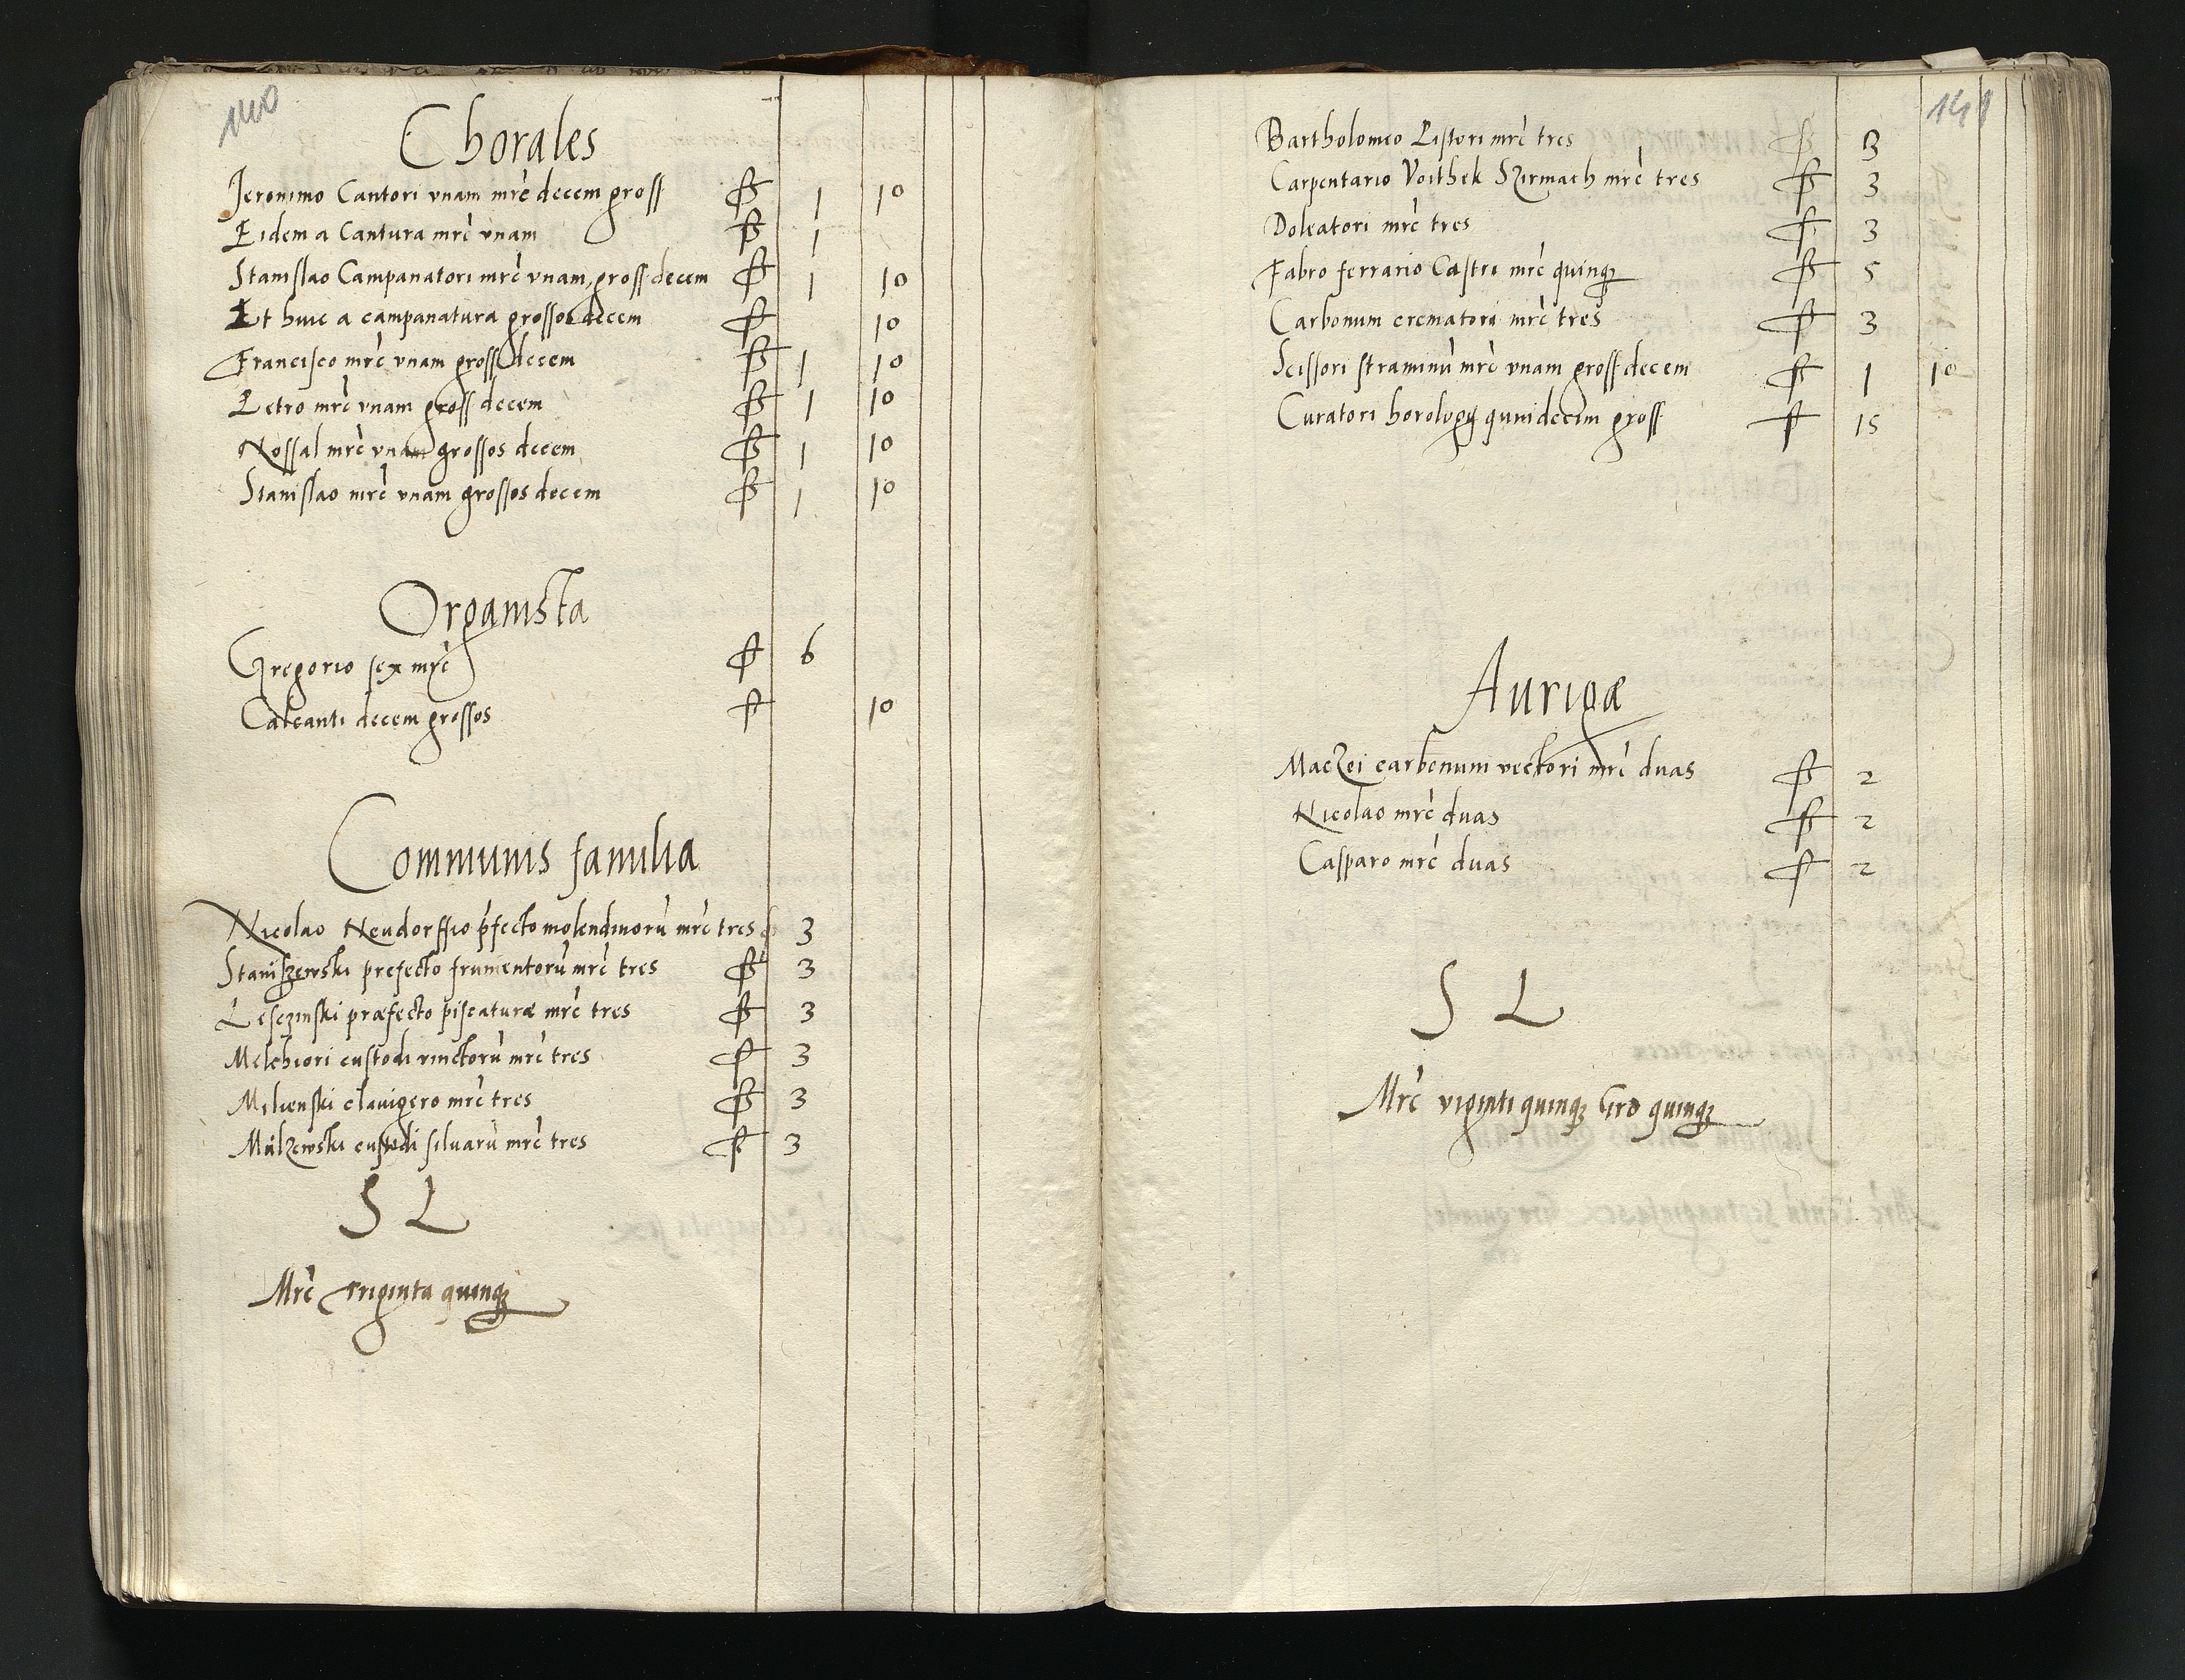 140
Chorales
Jeronimo Cantori vnam mrć decem gross ꝑ 1 10
Eidem a Cantura mrć vnam ꝑ 1
Stanislao Campanatori mrć vnam, gross decem ꝑ 1 10
Et huic a campanatura grossos decem ꝑ 10
Francisco mrć vnam gross decem ꝑ 1 10
Petro mrć vnam gross decem ꝑ 1 10
Nossal mrć vnam grossos decem ꝑ 1 10
Stanislao mrć vnam grossos decem ꝑ 1 10
Organista
Gregorio sex mrć ꝑ 6
Calcanti decem grossos ꝑ 10
Communis familia
Nicolao Neudorffio pfecto molendinorū mrć tres 3
Staniszewski prefecto frumentorū mrć tres ꝑ 3
Lesczinski præfecto piscaturæ mrć tres ꝑ 3
Melchiori custodi vinctorū mrć tres ꝑ 3
Milienski clauigero mrć tres ꝑ 3
Malzewski custodi siluarū mrć tres ꝑ 3
S L
Mrć triginta quinqꝫ
141
Bartholomeo Pistori mrć tres ꝑ 3
Carpentario Voithek Szirmach mrć tres ꝑ 3
Doleatori mrć tres ꝑ 3
Fabro ferrario Castri mrć quinqꝫ ꝑ 5
Carbonum crematori mrć tres ꝑ 3
Scissori straminū mrć vnam gross decem ꝑ 1 10
Curatori horologij quindecim gross ꝑ 15
Aurigæ
Maczei carbonum vectori mrć duas ꝑ 2
Nicolao mrć duas ꝑ 2
Casparo mrć duas ꝑ 2
S L
Mrć viginti quinqꝫ Gro quinqꝫ